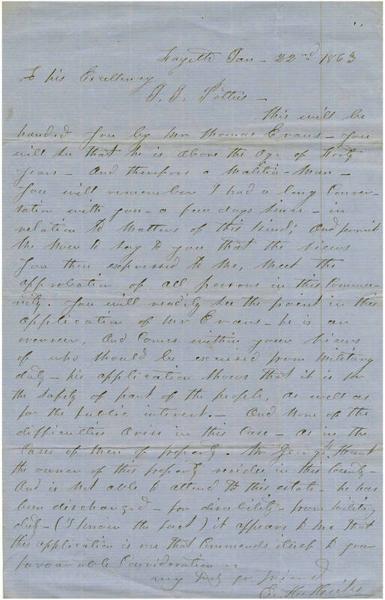 Fayette Jan - 22nd 1863
To his Excellency
J. J. Pettus -
This will be
handed you by Mr Thomas Evans - you
will see that he is above the age of Forty
years - And therefore a Malitia - Man -
You will remember I had a long Conver-
sation with you - a few days since - in
relation to Matters of this kind; And permit
Me Now to say to you that the views
you then expressed to Me, Meet the
approbation of all persons in this Commu-
nity. You will readily see the point in this
application of Mr Evans - he is an
overseer, And Comes within your views
of who should be excused from Military
duty - his application shows that it is for
the safety of part of the people, as well as
for the public interest. - And None of the
difficulties arise in this Case - as in the
Cases of Men of property. Mr
the owner of this property resides in this County -
And is Not able to attend to this estate - he has
been discharged - for disability - from military
duty - (I know the fact) it appears to Me that
this application is one that Commends itself to your
favourable Consideration -
my